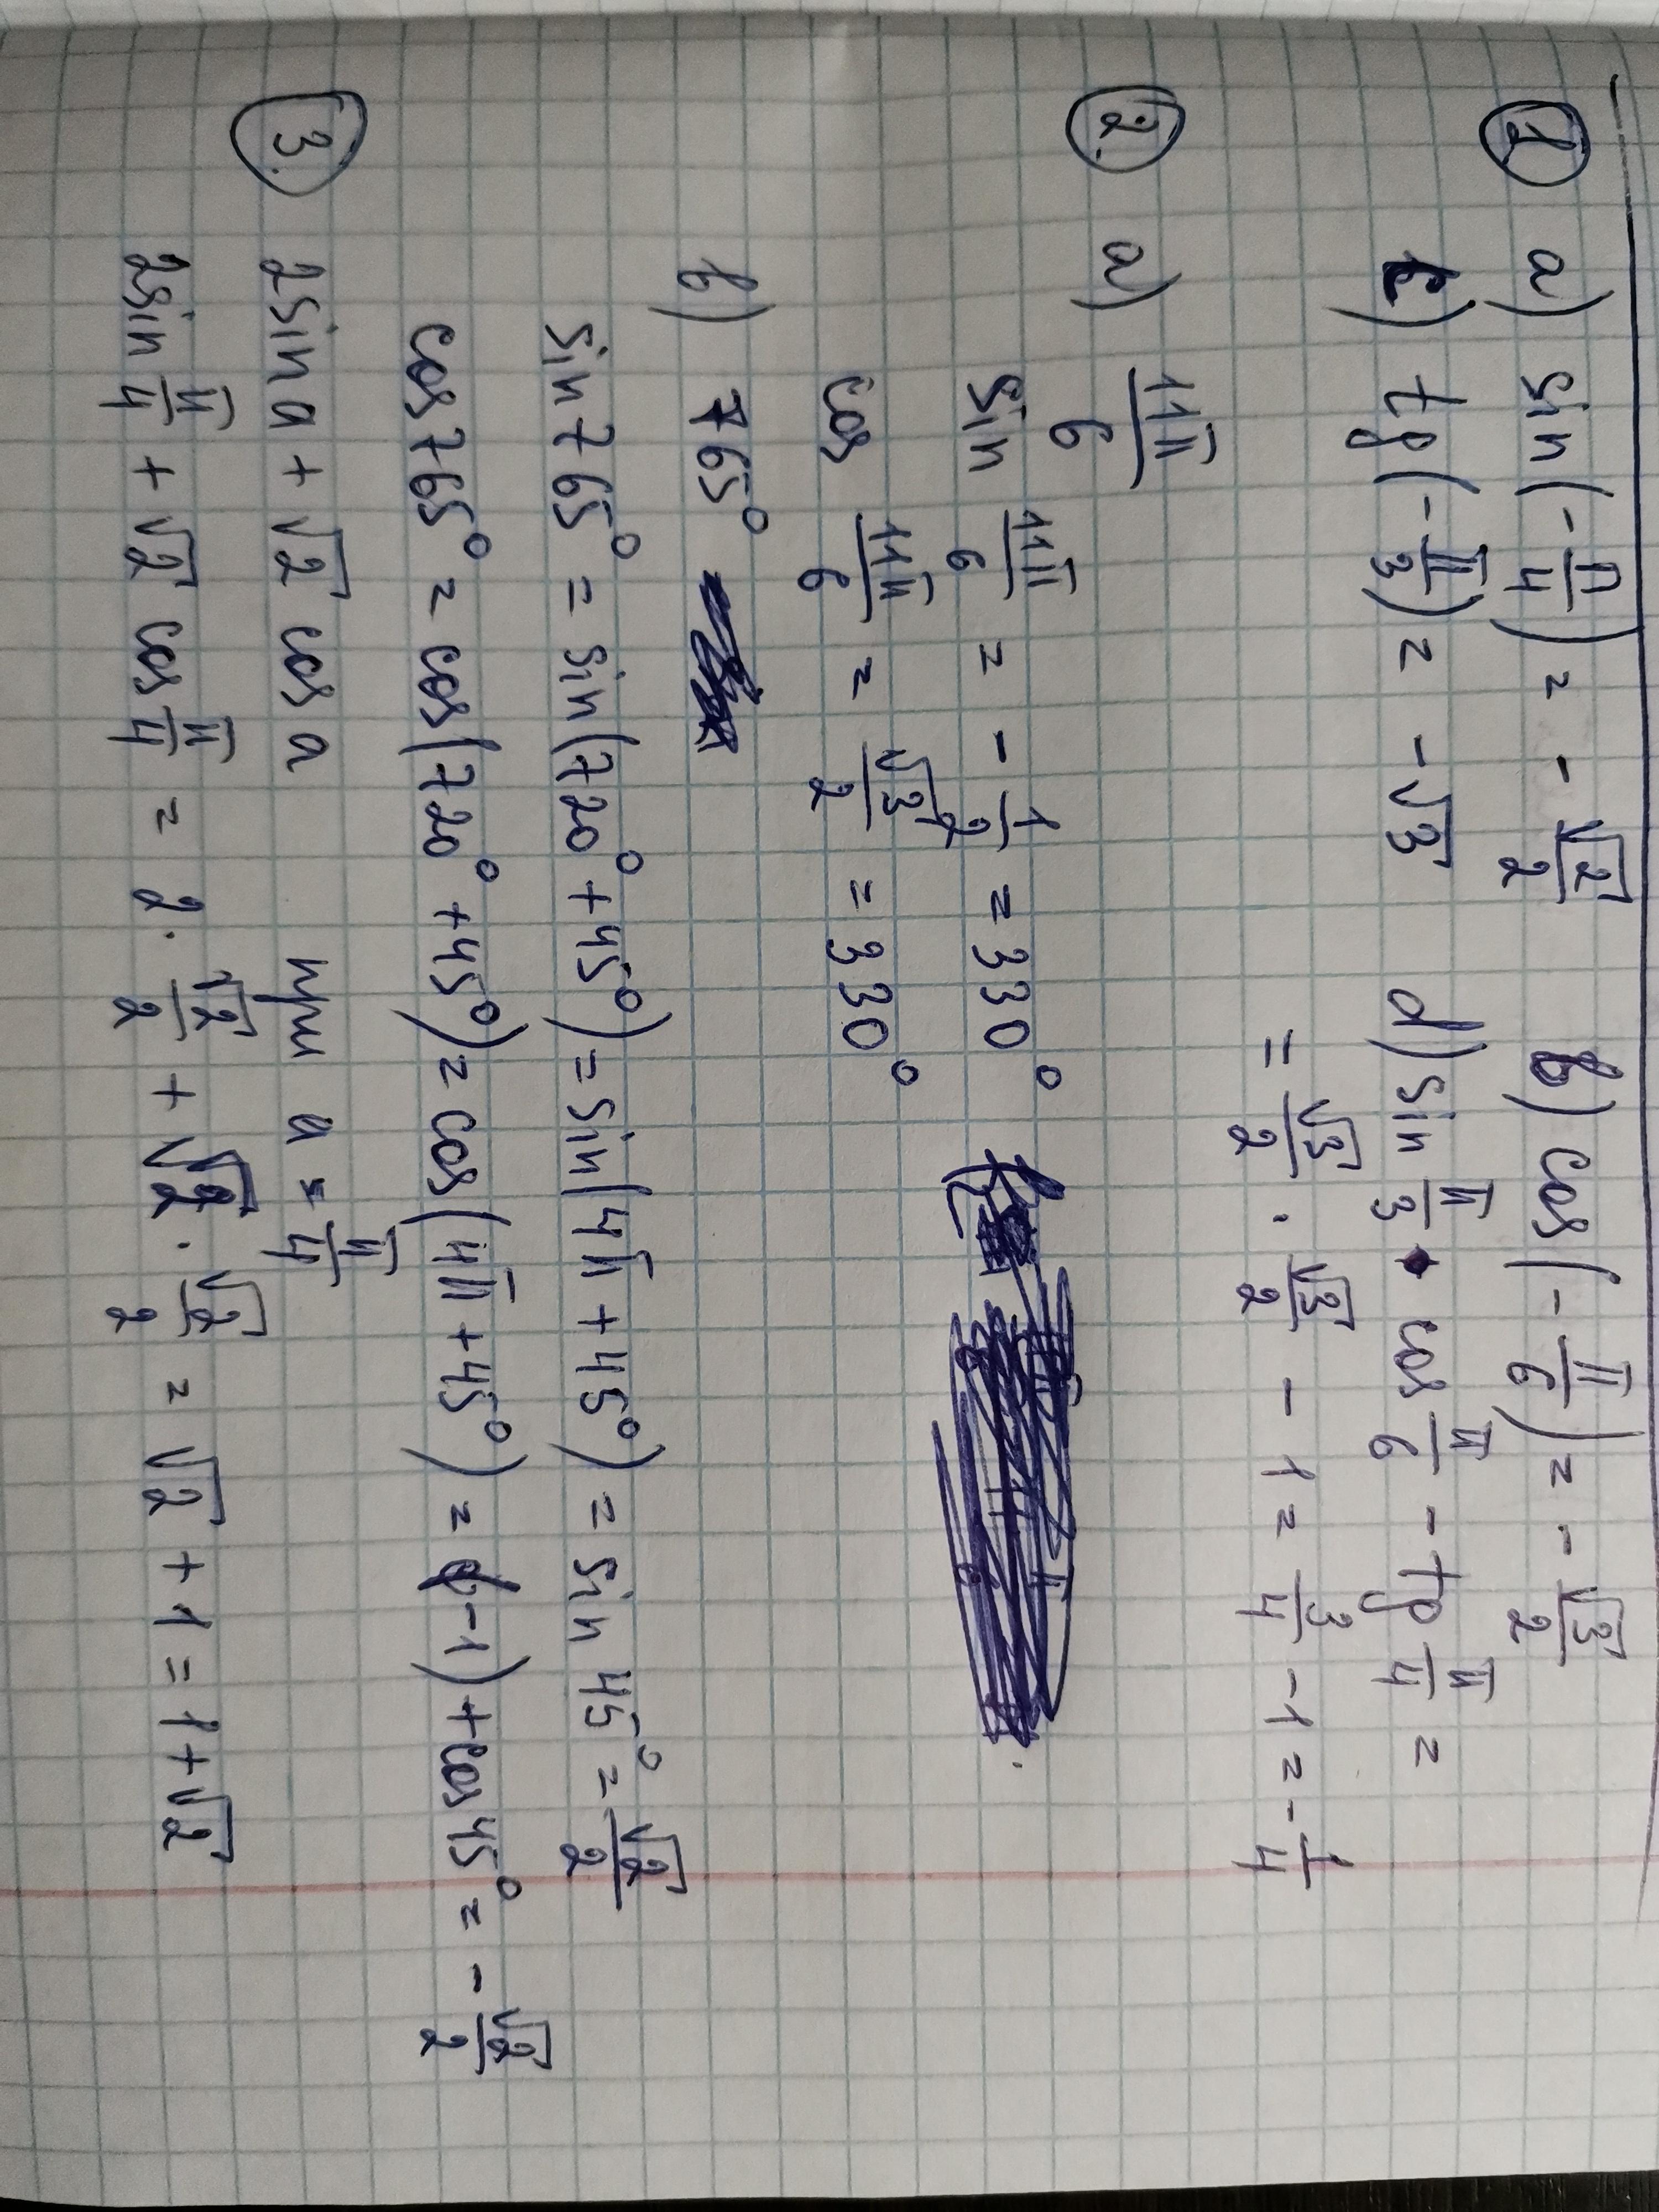 1. a) sin(-π/4) = -√2/2 b) cos(-π/6) = -√3/2
c) tg(-π/3) = -√3 d) sin π/3 · cos π/6 - tg π/4 =
= √3/2 · √3/2 - 1 = 3/4 - 1 = -1/4
2. a) 11π/6
sin 11π/6 = -1/2 = 330°
cos 11π/6 = √3/2 = 330°
b) 765°
sin 765° = sin(720° + 45°) = sin(4π + 45°) = sin 45° = √2/2
cos 765° = cos(720° + 45°) = cos(4π + 45°) = (-1) + cos 45° = -√2/2
3. 2sin a + √2 cos a при a = π/4
2sin π/4 + √2 cos π/4 = 2 · √2/2 + √2 · √2/2 = √2 + 1 = 1 + √2